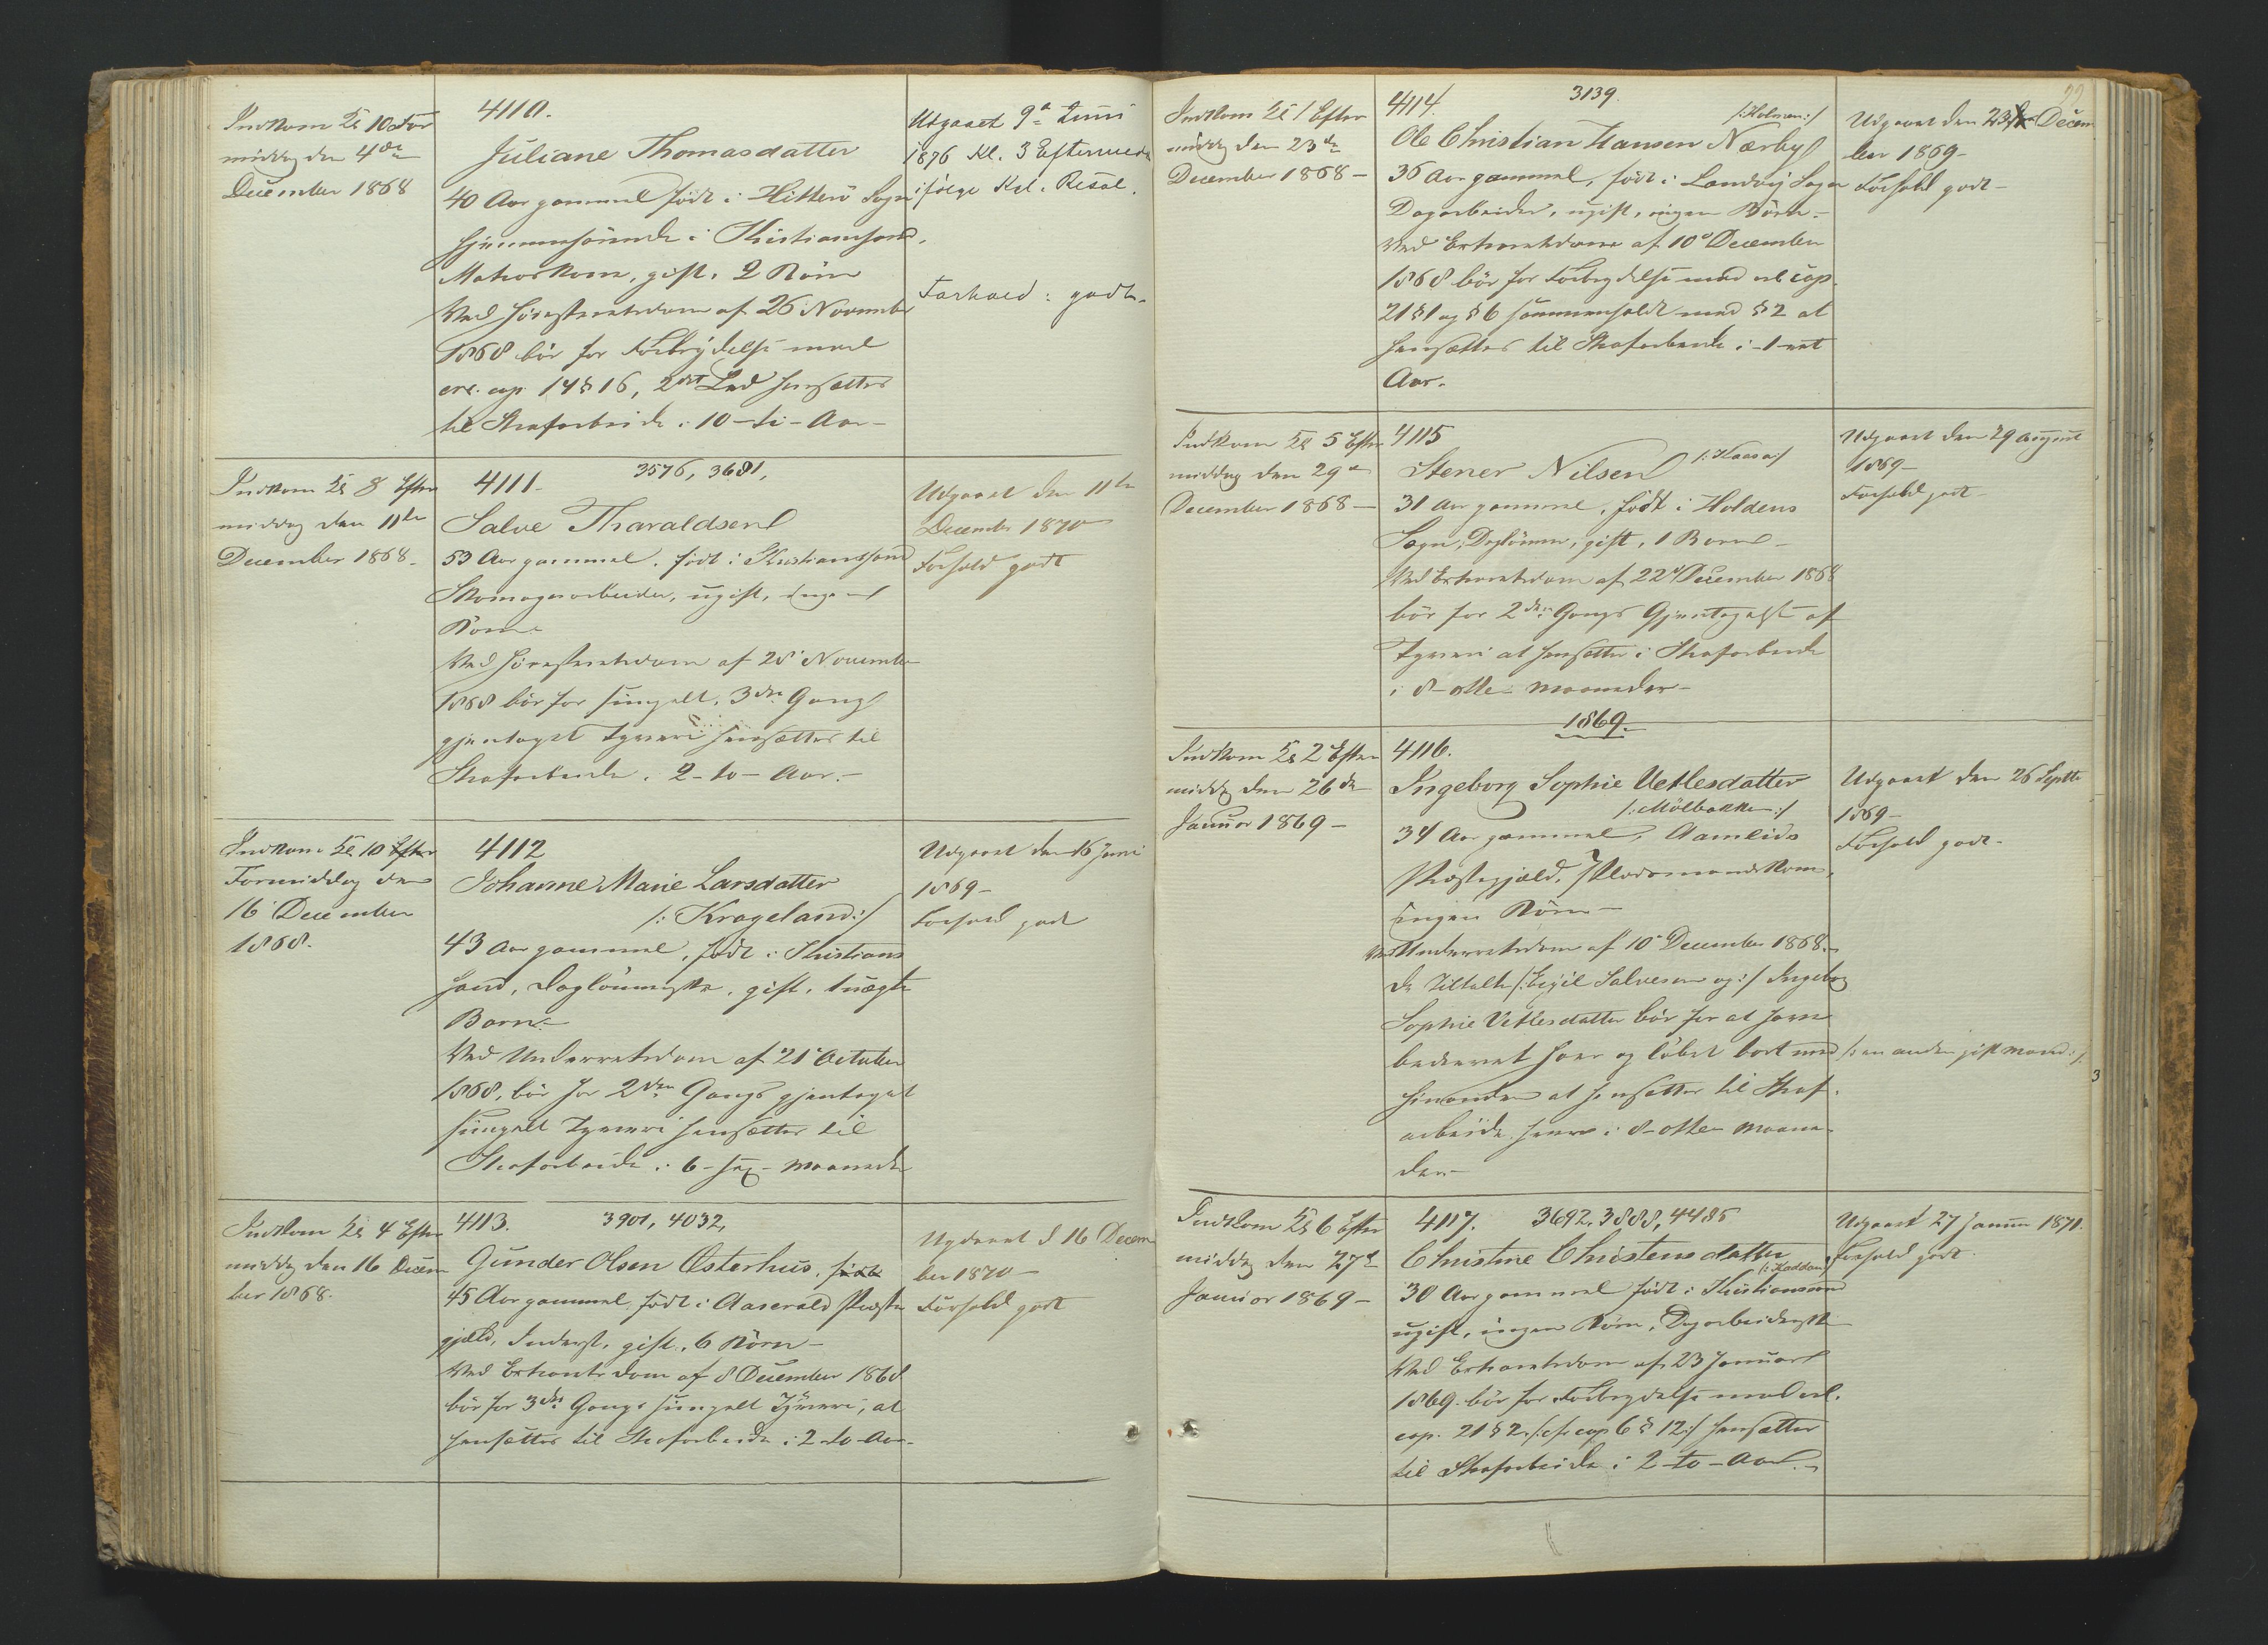 Indkom Kl 10 For
middag den 4de
December 1868
4110.
Juliane Thomasdatter
40 Aar gammel født i Hitterö Sogn
hjemmehörende i Christianssand,
Matroskone, gift, 2 Börn
Ved Höiesteretsdom af 26 November
1868 bör for Forbrydelse mod
crl. cap 14 § 16, 2det Led hensættes
til Strafarbeide i 10 - ti - Aar -
Udgaaet 9de Juni
1876 Kl. 3 Eftermid
ifölge Kgl. Resol.
Forhold: godt.
Indkom Kl 8 Efter
middag den 11te
December 1868.
4111. 3576, 3681,
Salve Tharaldsen
53 Aar gammel, födt i Christianssand
Skomagerarbeider, ugift, ingen
Börn
Ved Höiesteretsdom af 28 November
1868 bör for simpelt, 3die Gang
gjentaget Tyveri hensættes til
Strafarbeide i 2 - to - Aar. -
Udgaaet den 11te
December 1870
Forhold godt
Indkom Kl 10 Efter
Formiddag den
16 December
1868.
4112
Johanne Marie Larsdatter
/: Krageland :/
43 Aar gammel, födt i Christians
sand, Daglönnerske, gift, 1 uægte
Barn. -
Ved Underretsdom af 21 October
1868, bör for 2den Gangs gjentaget
simpelt Tyveri hensættes til
Strafarbeide i 6 - sex - Maaneder
Udgaaet den 16 Juni
1869 -
Forhold godt
Indkom Kl 4 Efter
middag den 16 Decem
ber 1868.
4113. 3901, 4032,
Gunder Olsen Østerhus, födt
45 Aar gammel, födt i Aaserald Præste
gjæld, Inderst, gift, 6 Börn -
Ved Extraretsdom af 8 December 1868
bör for 3die Gangs simpelt Tyveri, at
hensættes til Strafarbeide i 2 - to - Aar.
Udgaaet d 16 Decem
ber 1870 -
Forhold godt
99
Indkom Kl 1 Efter
middag den 23de
December 1868 -
4114. 3139.
/: Holmen :/
Ole Christian Hansen Nærby
36 Aar gammel, födt i Landvig Sogn
Dagarbeider, ugift, ingen Börn. -
Ved Extraretsdom af 10de December
1868 bör for Forbrydelse mod crl cap.
21 § 1 og § 6 sammenholdt med § 2 at
hensættes til Strafarbeide i - 1 - eet
Aar.
Udgaaet den 23de Decem
ber 1869 -
Forhold godt -
Indkom Kl 5 Efter
middag den 29de
December 1868 -
4115
Stener Nilsen /: Kaasa :/
31 Aar gammel, födt i Holdens
Sogn, Daglönner, gift, 1 Barn -
Ved Extraretsdom af 22de December 1868
bör for 2den Gangs Gjentagelse af
Tyveri at hensættes i Strafarbeide
i 8 - otte - Maaneder -
Udgaaet den 29 August
1869 -
Forhold godt -
1869.
Indkom Kl 2 Efter
middag den 26de
Januar 1869 -
4116.
Ingeborg Sophie Vetlesdatter
/: Mölbakken :/
34 Aar gammel, Aamlids
Præstegjæld, Pladsmandskone,
ingen Börn -
Ved Underretsdom af 10de December 1868. -
De Tiltalte /: Eigil Salvesen og :/ Ingeborg
Sophie Vetlesdatter bör for at have
bedrevet Hoer og löbet bort med /: en anden gift Mand :/
hinanden at hensættes til Straf.
arbeide hver i 8 - otte - Maane-
der. -
Udgaaet den 26 Septbr
1869 -
Forhold godt -
3
Indkom Kl 6 Efter
middag den 27de
Januar 1869 -
4117. 3692, 3888, 4485
Christine Christensdatter
/: Kaddan :/
30 Aar gammel födt i Christianssand
ugift, ingen Börn, Dagarbeiderske
Ved Extraretsdom af 23 Januar
1869. bör for Forbrydelse mod crl.
cap. 21 § 2, /: cfr cap 6 § 12 :/ hensættes
til Strafarbeide i 2 - to - Aar. -
Udgaaet 27 Januar 1871.
Forhold godt.